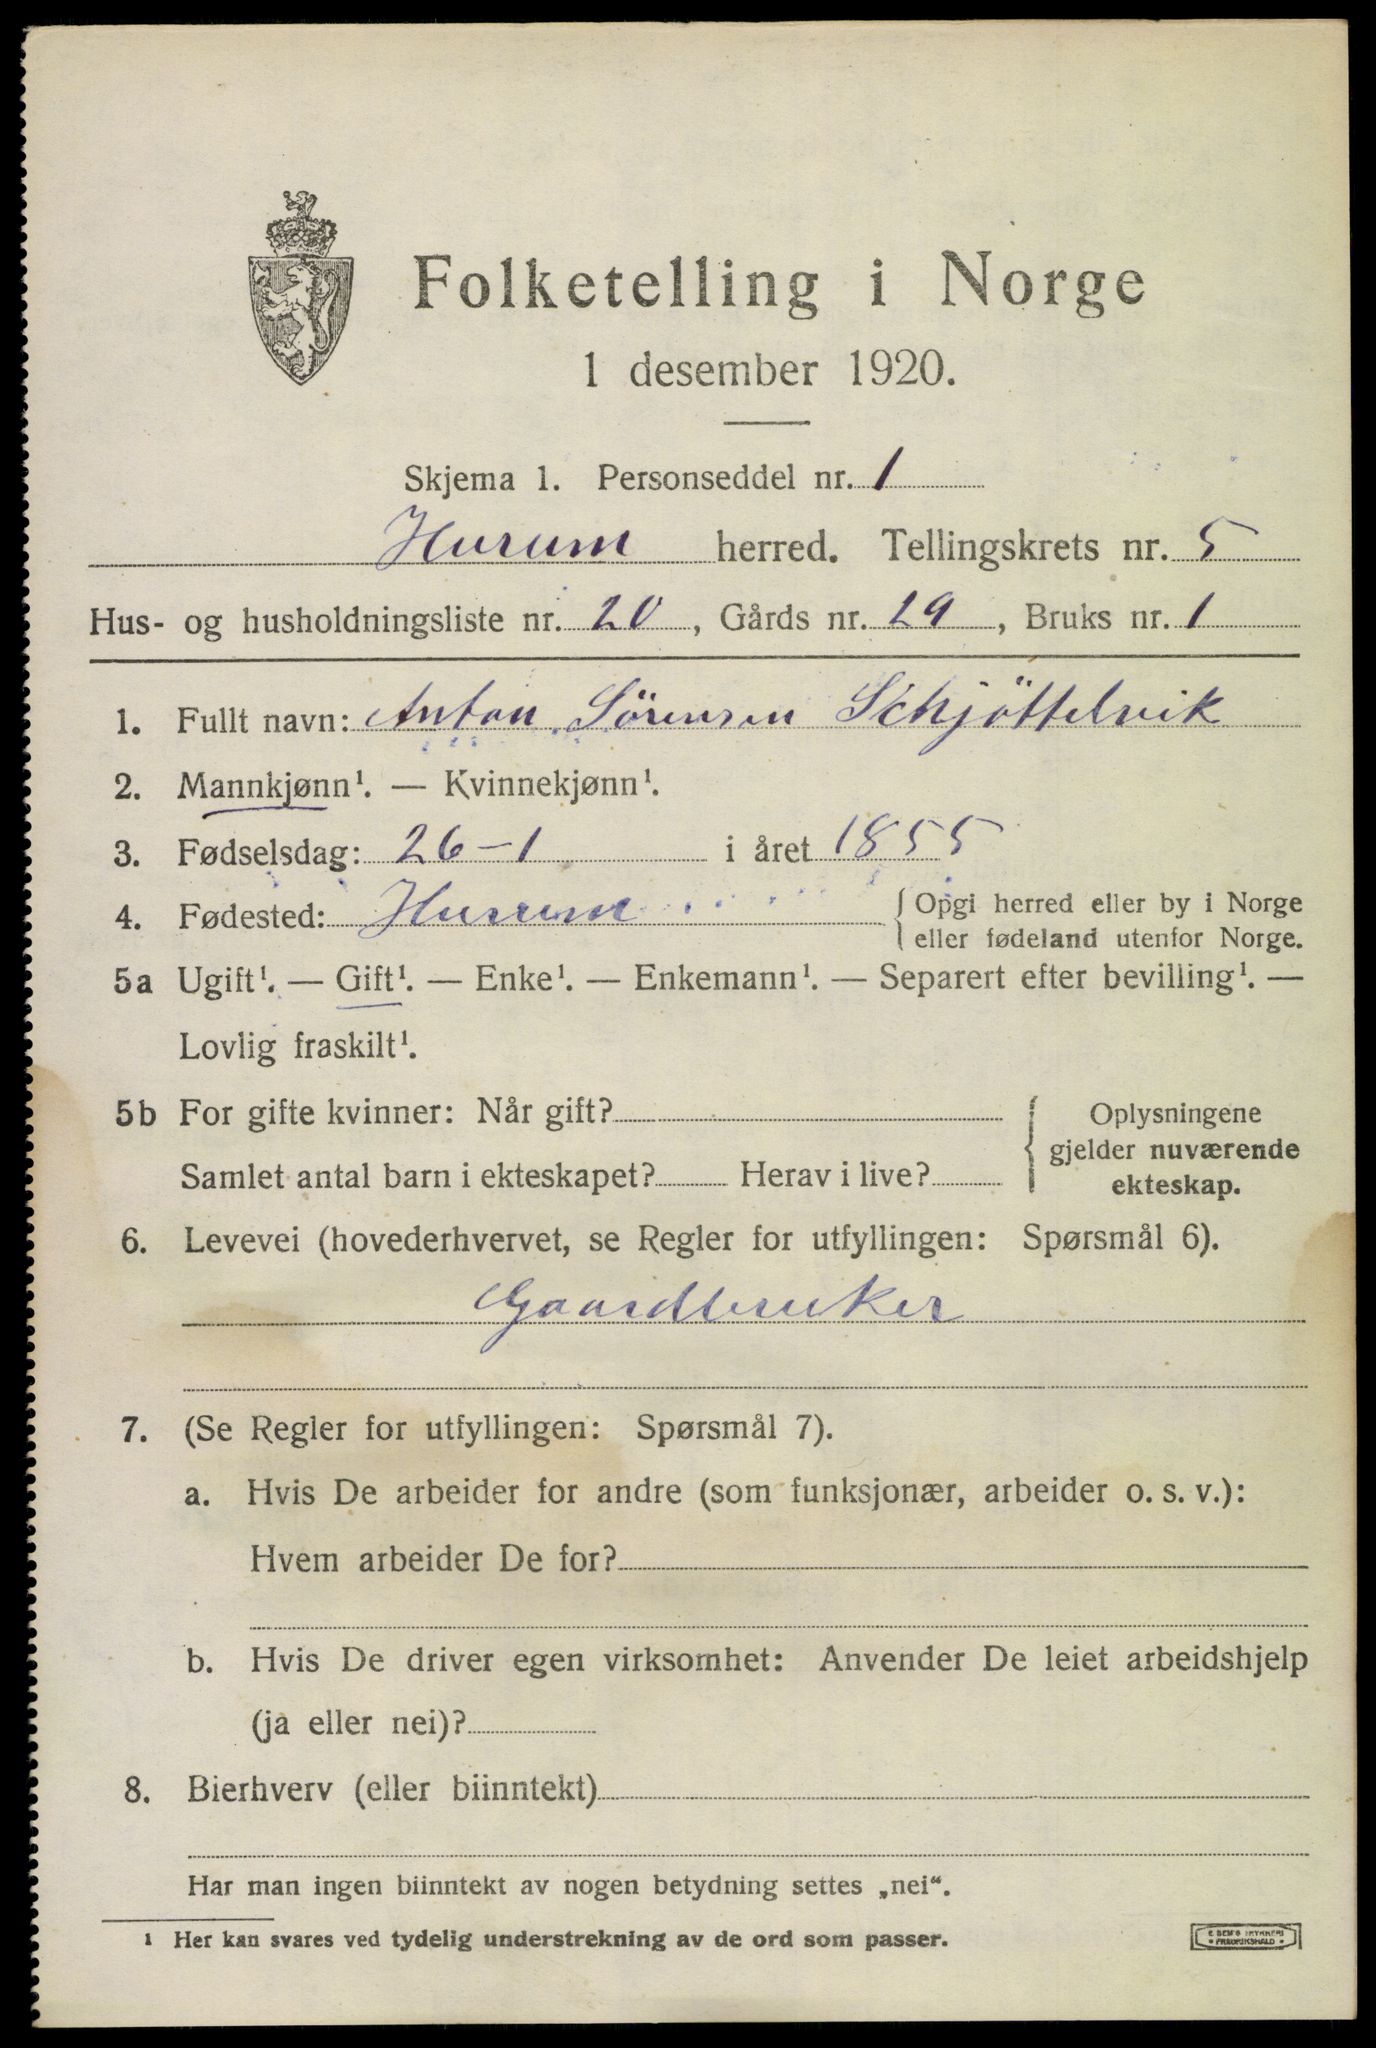 Folketelling i Norge
1 desember 1920.
Skjema 1. Personseddel nr. 1
Hurum herred. Tellingskrets nr. 5
Hus- og husholdningsliste nr. 20, Gårds nr. 29, Bruks nr. 1
1. Fullt navn: Anton Sörensen Schjöttelvik
2. Mannkjønn¹. — Kvinnekjønn¹.
3. Fødselsdag: 26-1 i året 1855
4. Fødested: Hurum { Opgi herred eller by i Norge
eller fødeland utenfor Norge.
5a Ugift¹. — Gift¹. — Enke¹. — Enkemann¹. — Separert efter bevilling¹. —
Lovlig fraskilt¹.
5b For gifte kvinner: Når gift?
Samlet antal barn i ekteskapet? Herav i live?
{ Oplysningene
gjelder nuværende
ekteskap.
6. Levevei (hovederhvervet, se Regler for utfyllingen: Spørsmål 6).
Gaardbruker
7. (Se Regler for utfyllingen: Spørsmål 7).
a. Hvis De arbeider for andre (som funksjonær, arbeider o. s. v.):
Hvem arbeider De for?
b. Hvis De driver egen virksomhet: Anvender De leiet arbeidshjelp
(ja eller nei)?
8. Bierhverv (eller biinntekt)
Har man ingen biinntekt av nogen betydning settes „nei“.
¹ Her kan svares ved tydelig understrekning av de ord som passer.
E SEM'S TRYKKERI
• FREDRIKSHALD •